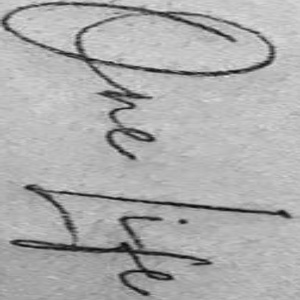 One Life